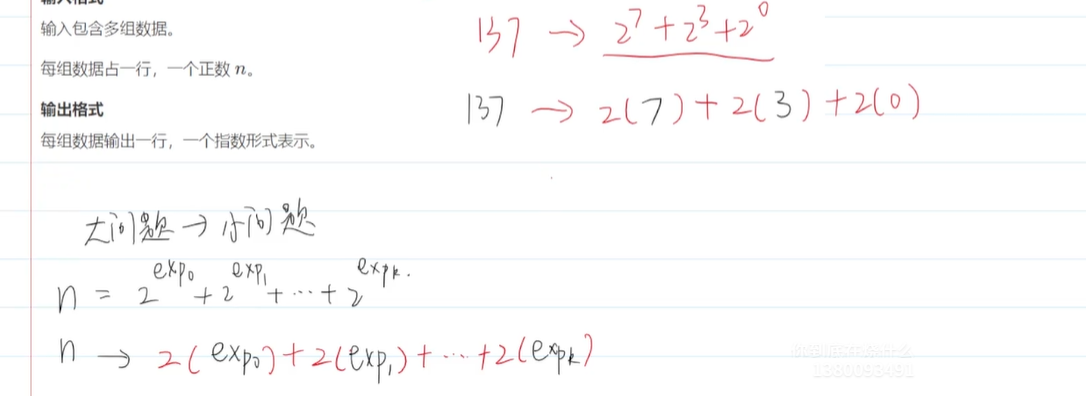 输入格式
输入包含多组数据。
每组数据占一行，一个正数 n。
输出格式
每组数据输出一行，一个指数形式表示。
137 → 2^7 + 2^3 + 2^0
137 → 2(7) + 2(3) + 2(0)
大问题 → 小问题
n = 2^exp₀ + 2^exp₁ + ⋯ + 2^expₖ.
n → 2(exp₀) + 2(exp₁) + ⋯ + 2(expₖ)
1380093491